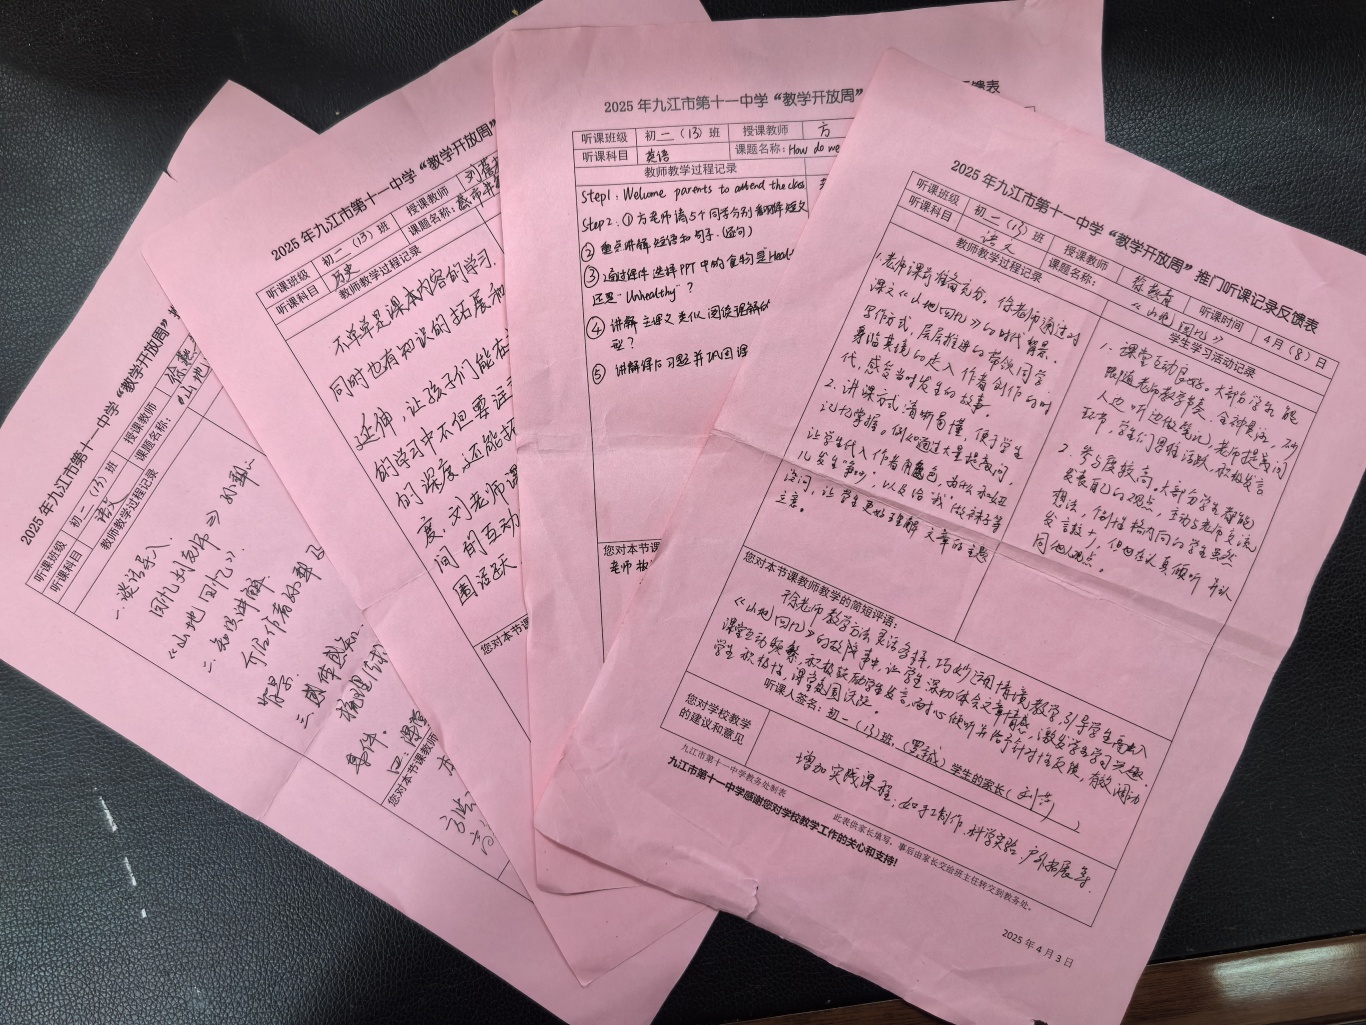 2025年九江市第十一中学“教学开放周”
听课班级 初二（13）班 授课教师
听课科目 语文 课题名称：《山地
教师教学过程记录
一、谈话导入.
回忆到友好⇒孙犁
《山地回忆》.
二、知识讲解
介绍作者孙犁及
背景.
三、感
梳理
事件.
您对本节课教师
2025年九江市第十一中学“教学开放周”
听课班级 初二（13）班 授课教师 刘
听课科目 历史 课题名称：
教师教学过程记录
不单单是课本内容的学习.
同时也有知识的拓展和
延伸，让孩子们能在
的学习中不但要注
的深度，还能拓
度.刘老师课
间的互动
围活跃.
您对本节课
2025年九江市第十一中学“教学开放周” 反馈表
听课班级 初二（13）班 授课教师 方
听课科目 英语 课题名称：How do we
教师教学过程记录
Step1: Welcome parents to attend the class
Step2. ①方老师请5个同学分别翻译短文
②重点讲解短语和句子.（逐句）
③通过课件选择PPT中的食物是“Heal
还是“Unhealthy”?
④讲解主课文类似阅读理解的
型?
⑤讲解课后习题并巩固课
您对本节课
老师
2025年九江市第十一中学“教学开放周”推门听课记录反馈表
听课班级 初二（13）班 授课教师 徐 听课时间 4月（8）日
听课科目 语文 课题名称：《山地回忆》
教师教学过程记录 学生学习活动记录
1.老师课前准备充分。徐老师通过对
课文《山地回忆》的时代背景、
写作方式，层层推进的带领同学
身临其境的走入作者创作的时
代，感受当时发生的故事。
2.讲课方式清晰易懂，便于学生
记忆掌握。例如通过大量提问，
让学生代入作者角色，为什么和妞
儿发生“争吵”，以及给“我”做袜子等
设问，让学生更好理解文章的主题
立意。
1.课堂互动良好。大部分学生能
跟随老师教学节奏、全神贯注，
人边听边做笔记，老师提问
环节，学生们思维活跃，积极发言
2.参与度较高，大部分学生都能
发表自己的观点，主动与老师交流
想法，个别性格内向的学生虽然
发言较少，但也在认真倾听并认
同他人观点。
您对本节课教师教学的简短评语：
徐老师教学方法灵活多样，巧妙运用情境教学，引导学生走入
《山地回忆》的故事中，让学生深切体会文章情感，激发学生学习兴趣.
课堂互动频繁，积极鼓励学生发言，耐心倾听并给予针对性反馈，有效调动
学生积极性，课堂氛围活跃。
听课人签名：初二（13）班，（ ）学生的家长（刘萍）
您对学校教学的建议和意见
增加实践课程：如手工制作、科学实验、户外拓展等.
九江市第十一中学教务处制表 此表供家长填写，事后由家长交给班主任转交到教务处。
九江市第十一中学感谢您对学校教学工作的关心和支持！
2025年4月3日